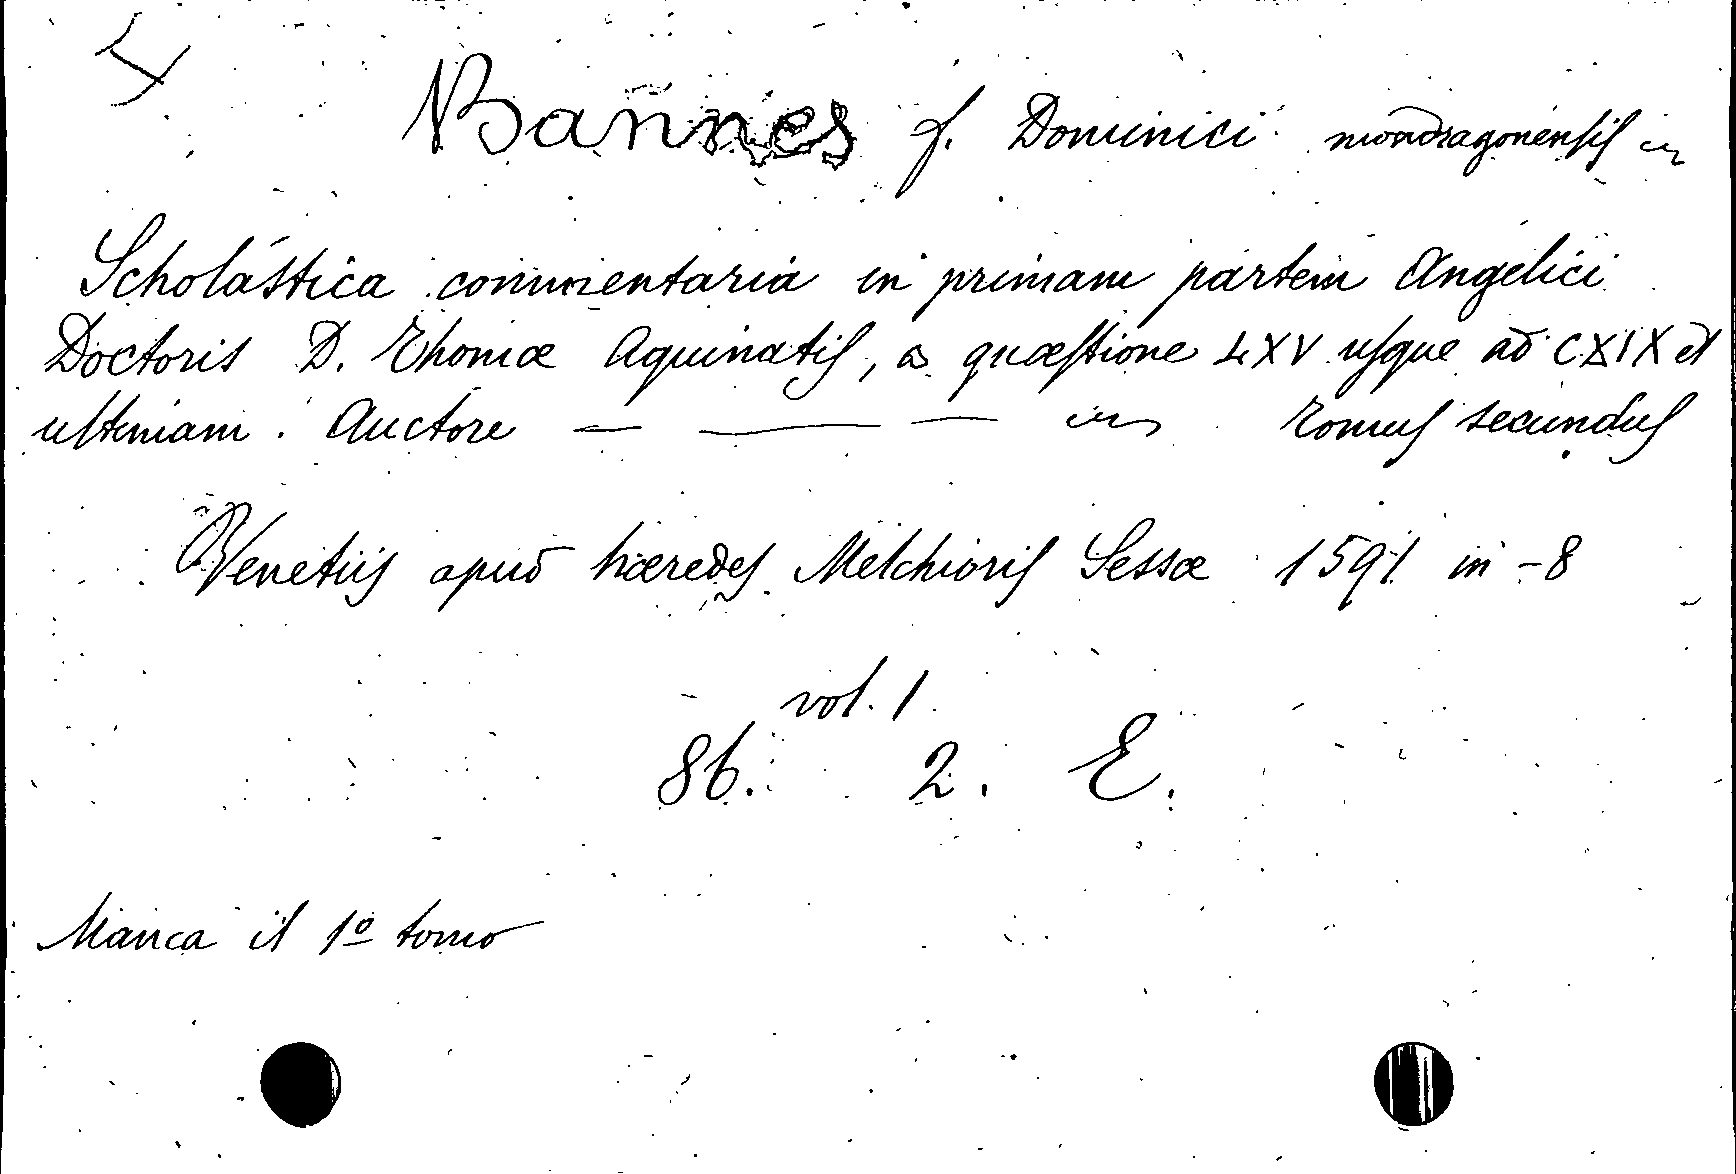 Bañnes f. Dominici mondragonensis
Scholastica commentaria in primam partem Angelici
Doctoris D. Thomæ Aquinatis, a quæstione LXV usque ad CXIX et
ultimam. Auctore — — — Tomus secundus
Venetiis apud hæredes Melchioris Sessæ 1591 in -8
vol. 1
86. 2. E.
Manca il 1º tomo